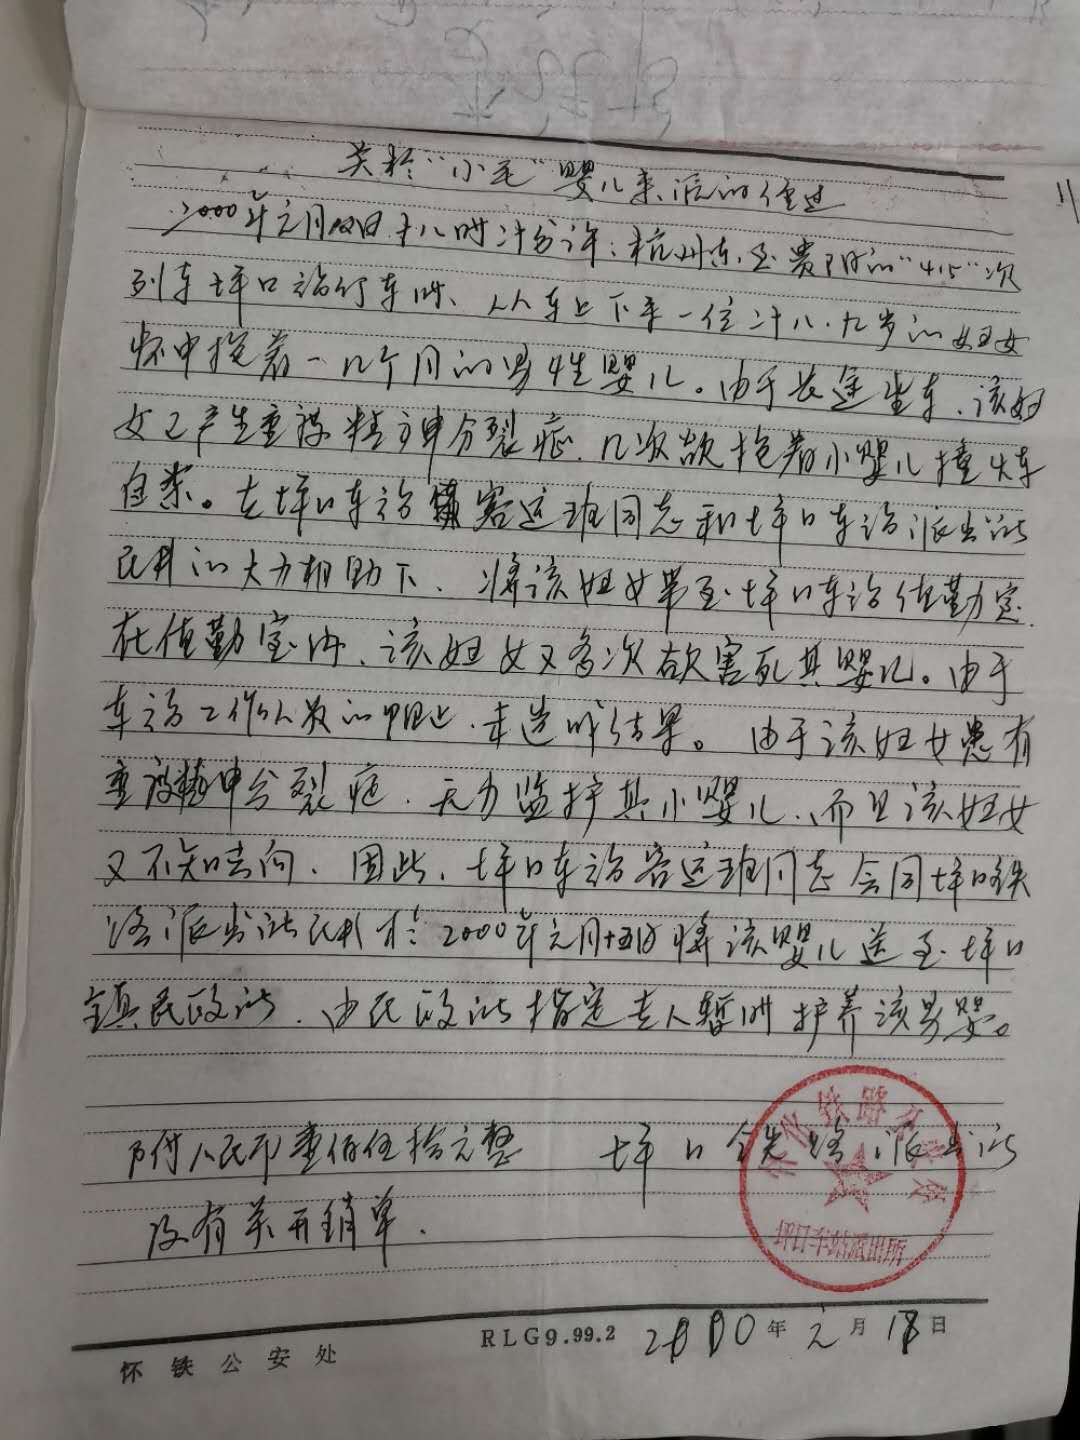 关于“小毛”婴儿来源的经过
2000年元月12日十八时二十分许：杭州东至贵阳的“415”次
列车坪口站停车时、从车上下来一位二十八.九岁的妇女
怀中抱着一几个月的男性婴儿。由于长途坐车、该妇
女已产生重度精神分裂症.几次欲抱着小婴儿撞火车
自杀。在坪口车站客运班同志和坪口车站派出所
民警的大力相助下、将该妇女带至坪口车站值勤室.
在值勤室内、该妇女又多次欲害死其婴儿。由于
车站工作人员的阻止.未造成结果。由于该妇女患有
重度精神分裂症.无力监护其小婴儿、而且该妇女
又不知去向.因此、坪口车站客运班同志会同坪口铁
路派出所民警于2000年元月十五日将该婴儿送至坪口
镇民政所.由民政所指定专人暂时护养该男婴。
附付人民币壹佰伍拾元整 坪口铁路派出所
及有关开销单.
怀化铁路公安处
坪口车站派出所
怀铁公安处 RLG9.99.2 2000年元月18日
11